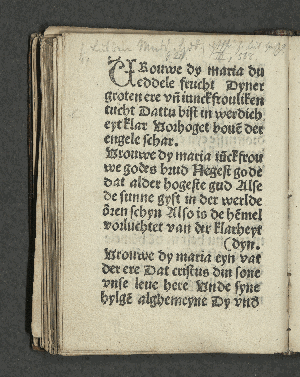 VRouwe dy maria du
eddele frucht Dyner
groten ere vñ iunckfrouliken
tucht Dattu bist in werdich
eyt klar Vorhoget bouẽ der
engele schar.
Vrouwe dy maria iũckfrou
we godes brud Negest gode
dat alder hogeste gud Alse
de sunne gyft in der werlde
ören schyn Also is de hẽmel
vorluchtet van der klarheyt
(dyn.
Vrouwe dy maria eyn vat
der ere Dat cristus din sone
vnse leue here Vnde syne
hylgẽ alghemeyne Dy vnd